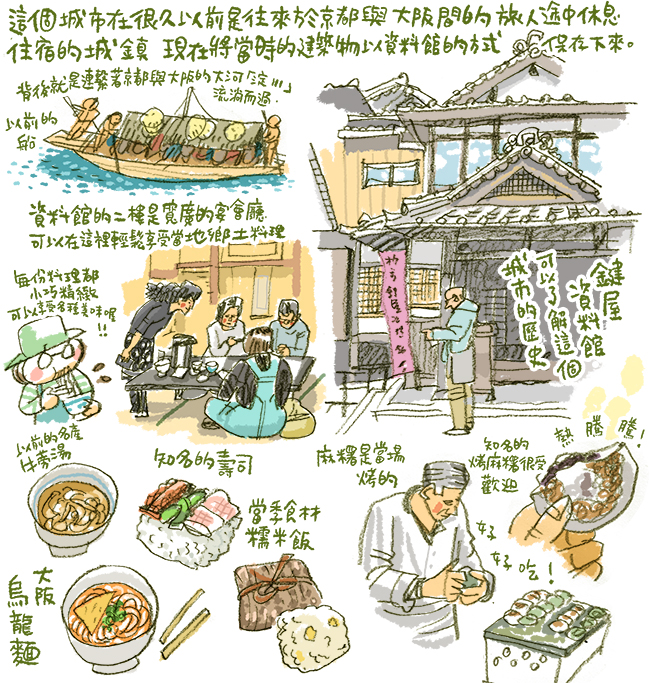 這個城市在很久以前是往來於京都與大阪間的旅人途中休息
住宿的城鎮 現在將當時的建築物以資料館的方式 保存下來。
背後就是連繫著京都與大阪的大河「淀川」
流淌而過.
以前的
船
資料館的二樓是寬廣的宴會廳.
可以在這裡輕鬆享受當地鄉土料理
每份料理都
小巧精緻
可以享受多種美味喔
!!
鍵屋
資料館
可以了解這個
城市的歷史
以前的名產
牛蒡湯
知名的壽司
當季食材
糯米飯
大阪
烏龍麵
麻糬是當場
烤的
知名的
烤麻糬很受
歡迎
熱騰騰!
好
好吃!